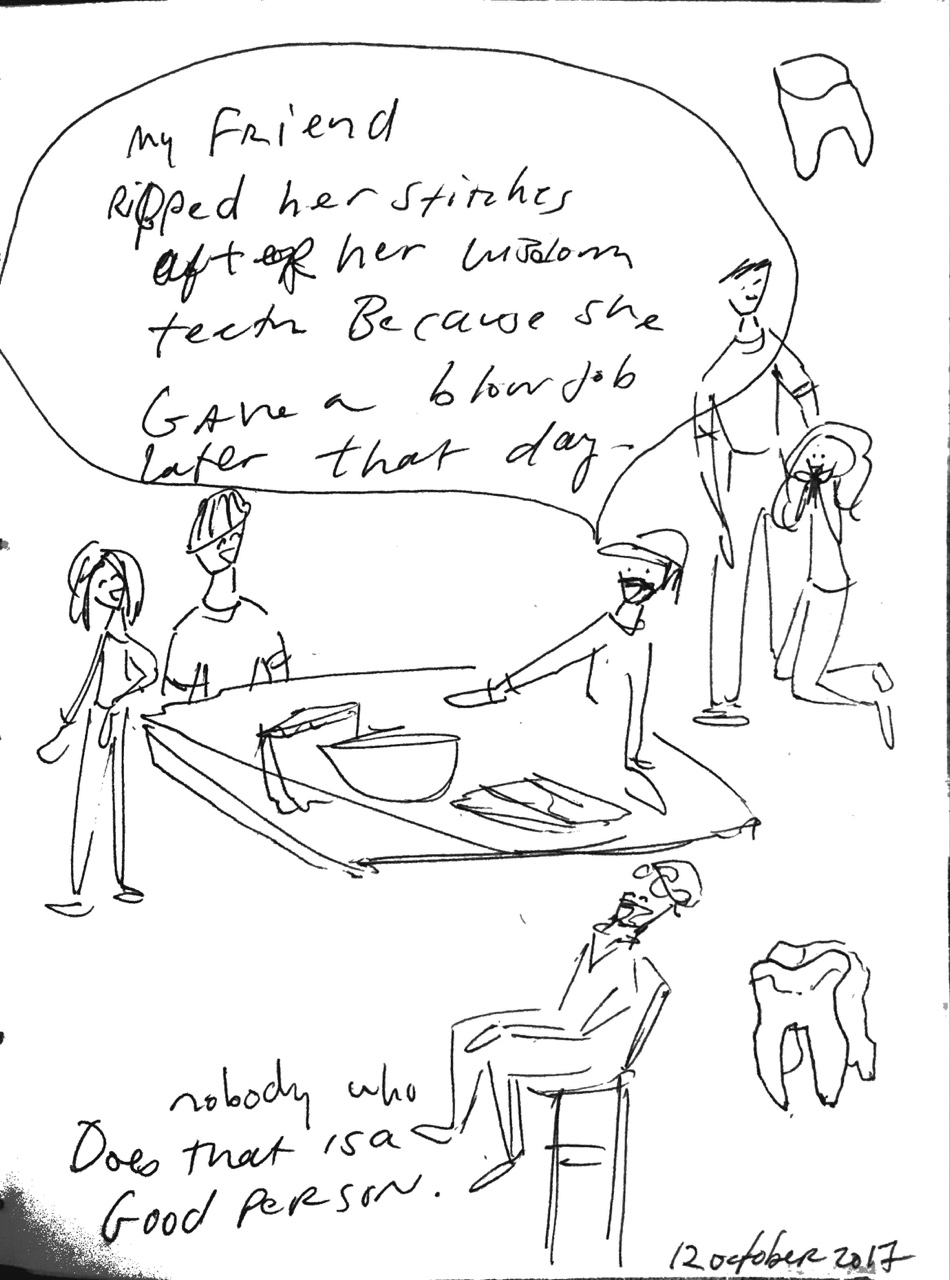 my Friend
Ripped her stitches
after her wisdom
teeth Because she
Gave a blow job
later that day-
nobody who
Does that is a
Good PERSON.
12 october 2017